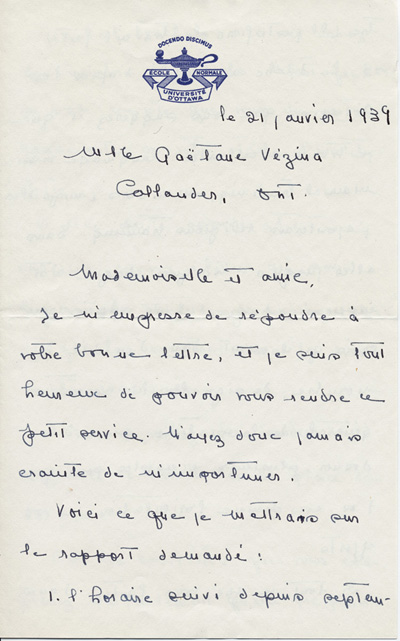 DOCENDO DISCIMUS
ÉCOLE NORMALE
UNIVERSITÉ
D'OTTAWA
le 21 janvier 1939
Mlle Gaëtane Vézina
Callander, Ont.
Mademoiselle et amie,
Je m'empresse de répondre à
votre bonne lettre, et je suis tout
heureux de pouvoir vous rendre ce
petit service. N'ayez donc jamais
crainte de m'importuner.
Voici ce que je mettrais sur
le rapport demandé :
1. l'horaire suivi depuis septem-